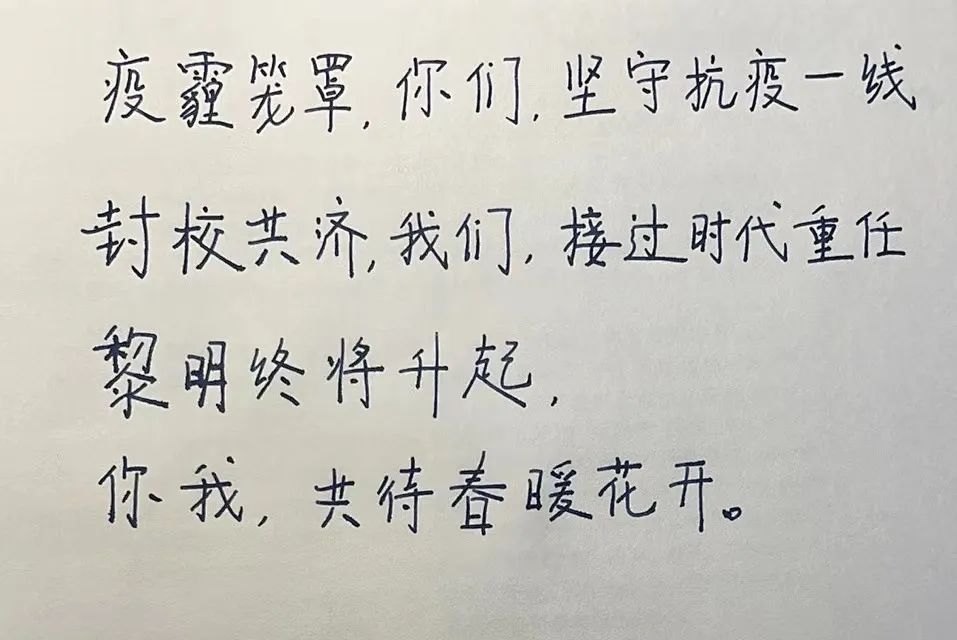 疫霾笼罩,你们,坚守抗疫一线
封校共济,我们,接过时代重任
黎明终将升起,
你我,共待春暖花开。